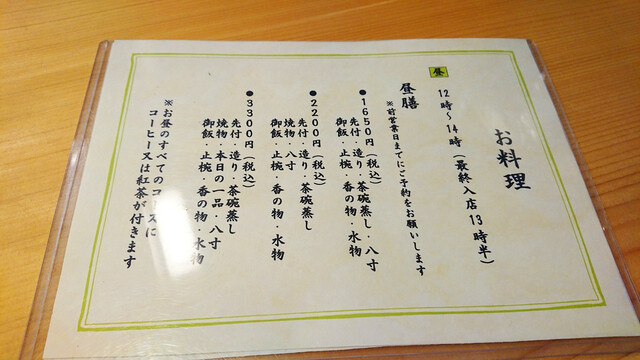 お料理
昼
12時～14時（最終入店13時半）
昼膳
※前営業日までにご予約をお願いします
●1650円（税込）
先付・造り・茶碗蒸し・八寸
御飯・止椀・香の物・水物
●2200円（税込）
先付・造り・茶碗蒸し
焼物・八寸
御飯・止椀・香の物・水物
●3300円（税込）
先付・造り・茶碗蒸し
焼物・本日の一品・八寸
御飯・止椀・香の物・水物
※お昼のすべてのコースに
コーヒー又は紅茶が付きます